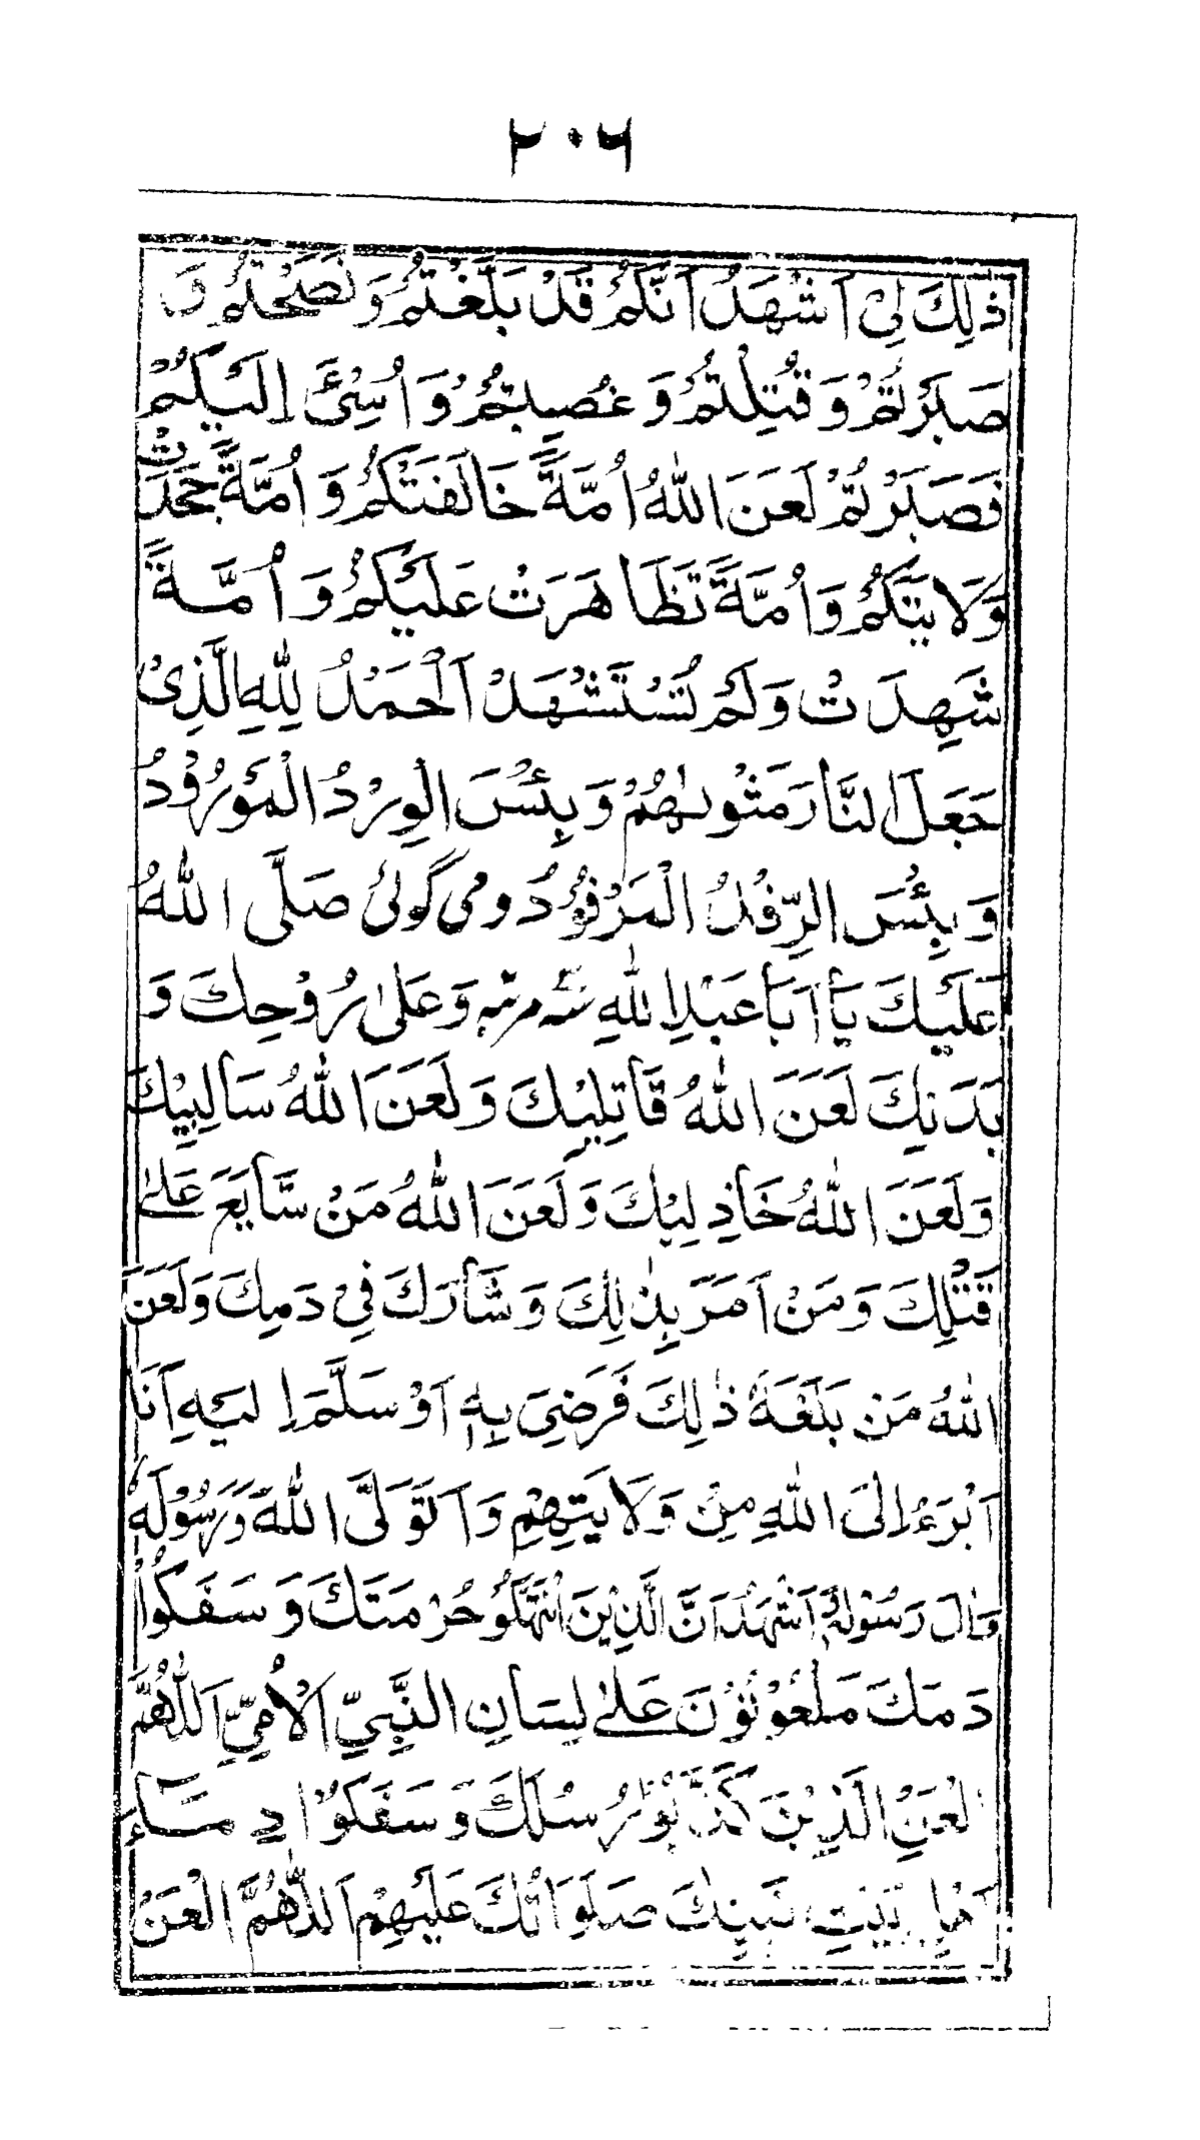 ۲۰۶
ذٰلِكَ لِیْ اَشْهَدُ اَنَّكُمْ قَدْ بَلَّغْتُمْ وَنَصَحْتُمْ وَ
صَبَرْتُمْ وَقُتِلْتُمْ وَ غُصِبْتُمْ وَ اُسِیْٓئَ اِلَيْكُمْ
فَصَبَرْتُمْ لَعَنَ اللّٰهُ اُمَّةً خَالَفَتْكُمْ وَ اُمَّةً جَحَدَتْ
وَلَايَتَكُمْ وَ اُمَّةً تَظَاهَرَتْ عَلَيْكُمْ وَ اُمَّةً
شَهِدَتْ وَ لَمْ تُسْتَشْهَدْ اَلْحَمْدُ لِلّٰهِ الَّذِیْ
جَعَلَ النَّارَ مَثْوٰىهُمْ وَ بِئْسَ الْوِرْدُ الْمَوْرُوْدُ
وَ بِئْسَ الرِّفْدُ الْمَرْفُوْدُ و می گوئی صَلَّی اللّٰهُ
عَلَيْكَ يَآ اَبَا عَبْدِ اللّٰهِ سه مرتبه وَ عَلٰی رُوْحِكَ وَ
بَدَنِكَ لَعَنَ اللّٰهُ قَاتِلِيْكَ وَ لَعَنَ اللّٰهُ سَالِبِيْكَ
وَ لَعَنَ اللّٰهُ خَاذِلِيْكَ وَ لَعَنَ اللّٰهُ مَنْ سَّايَعَ عَلٰی
قَتْلِكَ وَ مَنْ اَمَرَ بِذٰلِكَ وَ شَارَكَ فِیْ دَمِكَ وَ لَعَنَ
اللّٰهُ مَنْ بَلَغَهٗ ذٰلِكَ فَرَضِیَ بِهٖ اَوْ سَلَّمَ اِلَيْهِ اَنَا
اَبْرَءُ اِلَی اللّٰهِ مِنْ وَلَايَتِهِمْ وَ اَتَوَلَّی اللّٰهَ وَ رَسُوْلَهٗ
وَاٰلَ رَسُوْلِهٖ وَ اَشْهَدُ اَنَّ الَّذِيْنَ انْتَهَكُوْ حُرْمَتَكَ وَ سَفَكُوْا
دَمَكَ مَلْعُوْنُوْنَ عَلٰی لِسَانِ النَّبِیِّ الْاُمِّیِّ اَللّٰهُمَّ
الْعَنِ الَّذِيْنَ كَذَّبُوْا رُسُلَكَ وَ سَفَكُوْا دِمَآءَ
اَهْلِ بَيْتِ نَبِيِّكَ صَلَوَاتُكَ عَلَيْهِمْ اَللّٰهُمَّ الْعَنْ